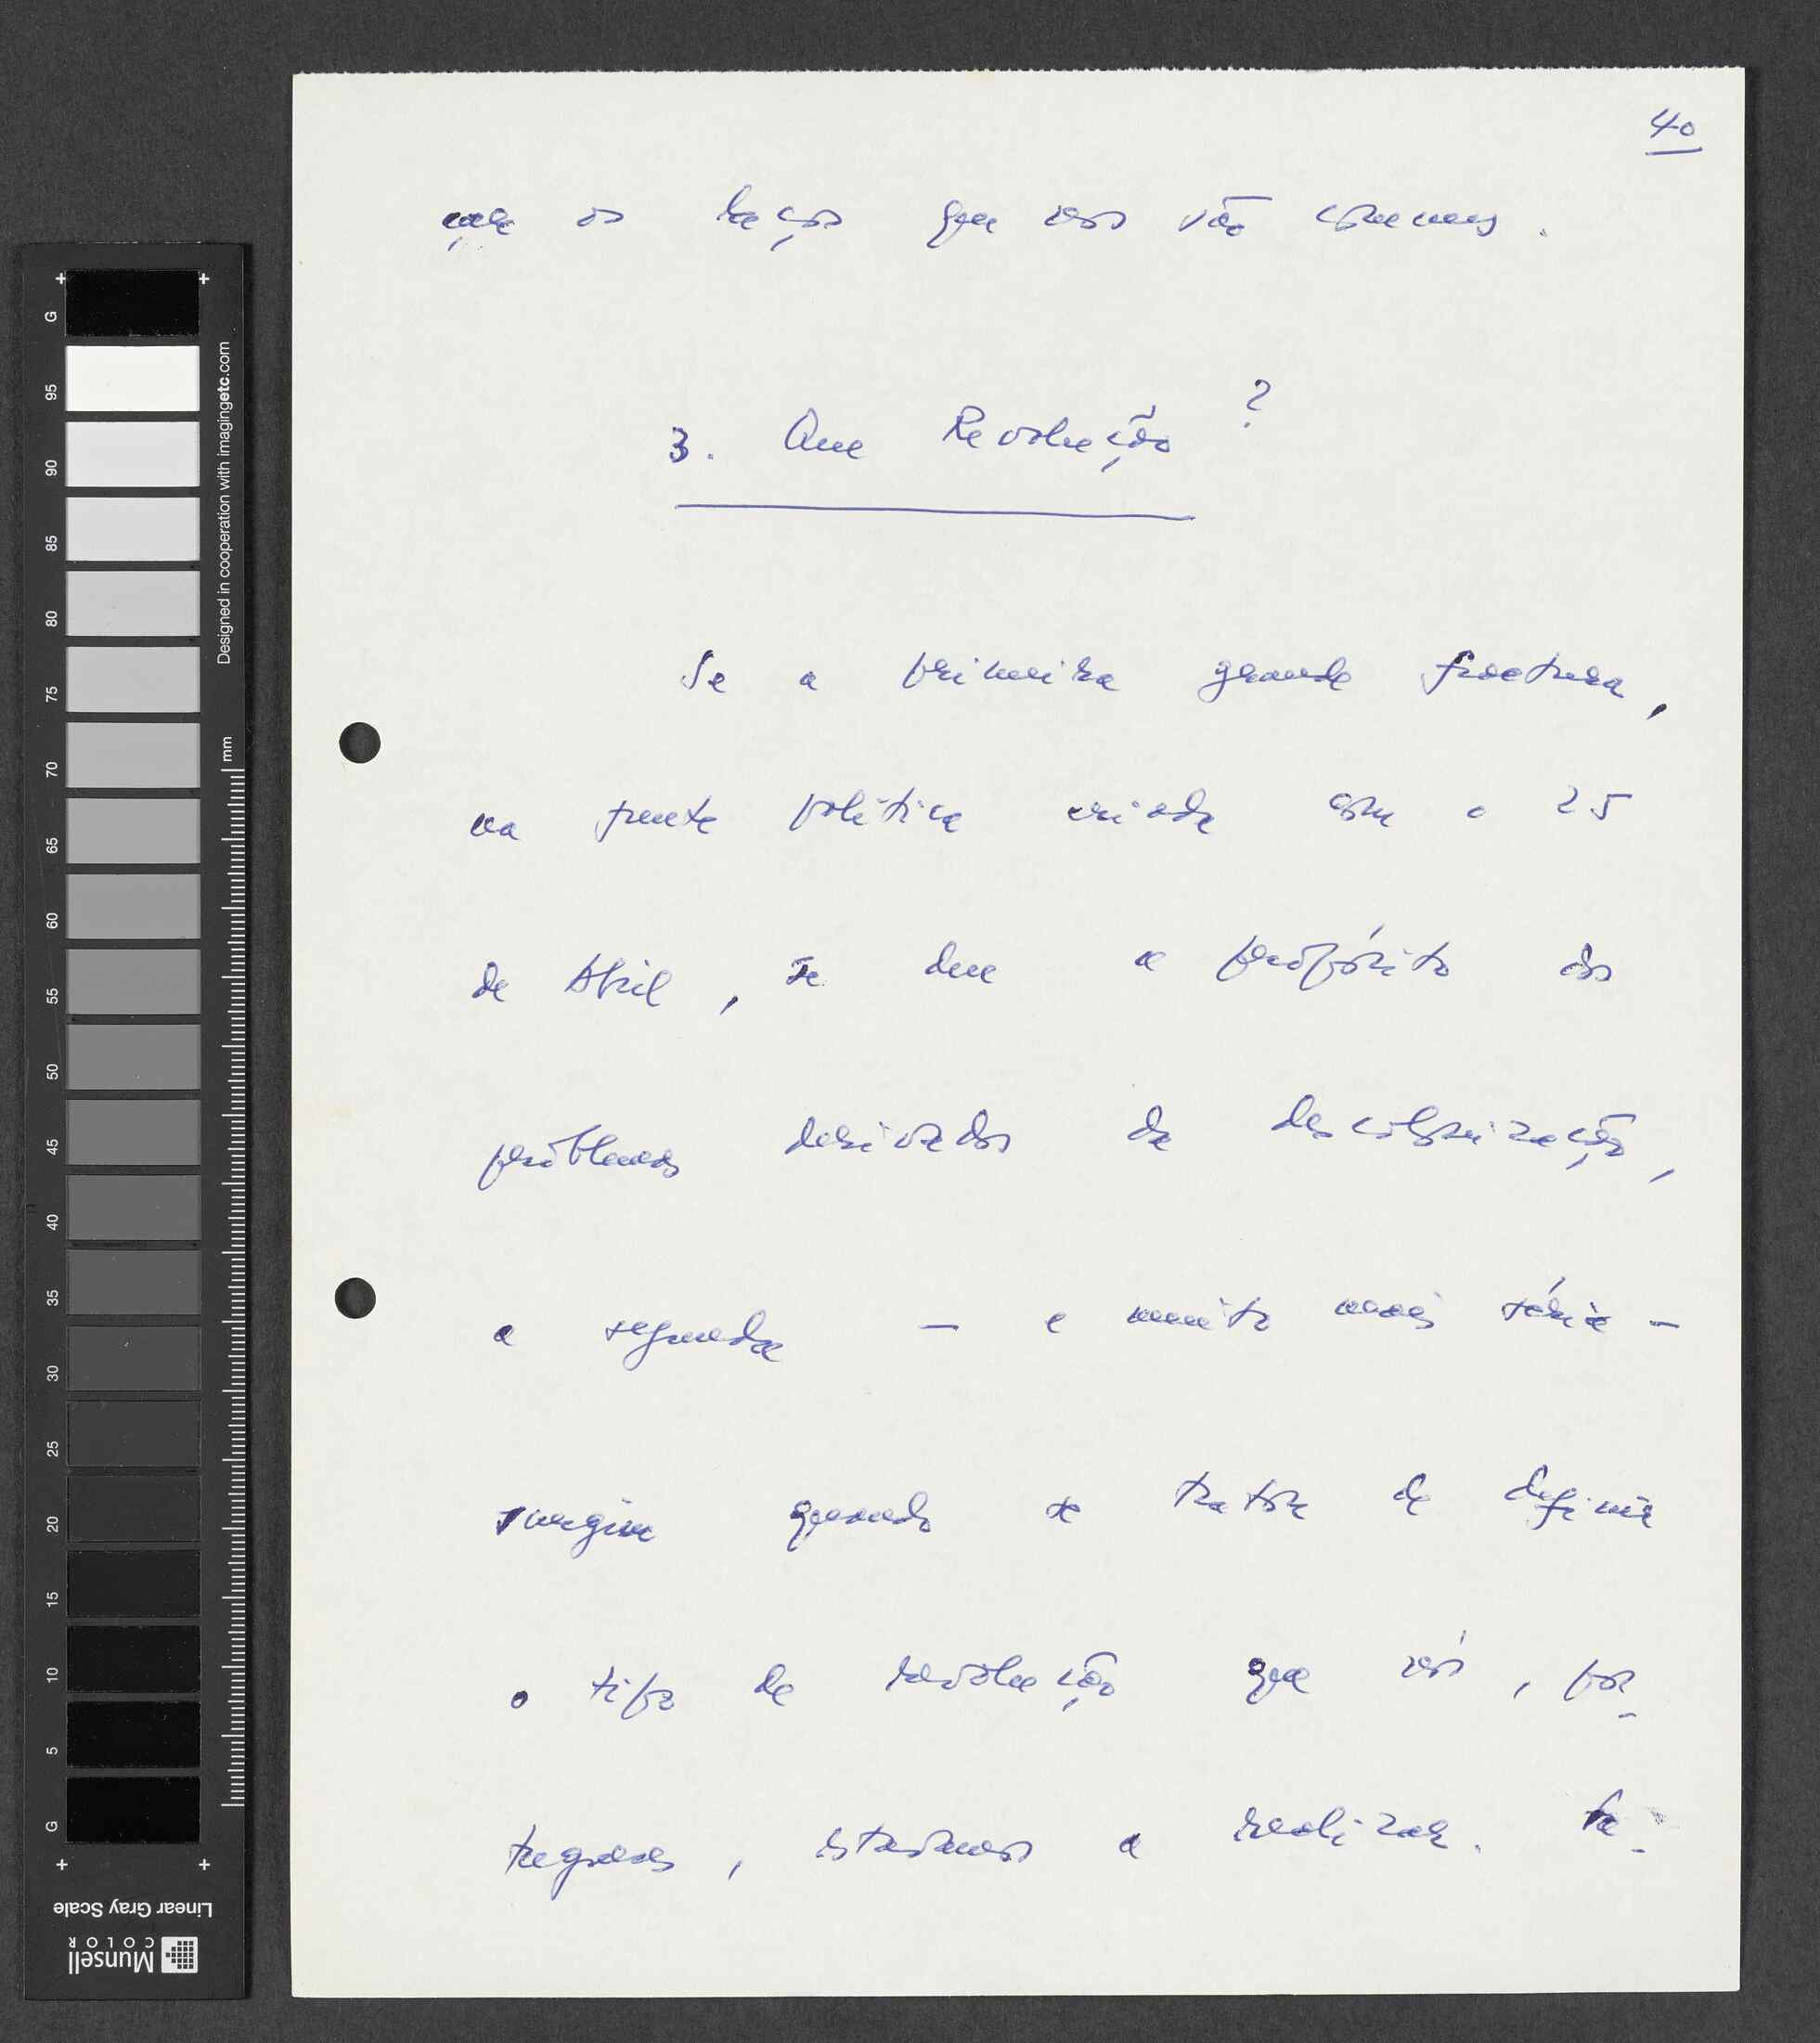 40
çar os laços que nos são comuns.
3. Que Revolução?
Se a primeira grande fractura,
na frente política criada com o 25
de Abril, se deu a propósito dos
problemas derivados da descolonização,
a segunda — e muito mais séria —
surgiu quando se tratou de definir
o tipo de revolução que nós, por-
tugueses, estávamos a realizar.
G
95
90
85
80
75
70
65
60
55
50
45
40
35
30
25
20
15
10
5
G
Designed in cooperation with imagingetc.com
mm
Linear Gray Scale
Munsell
COLOR